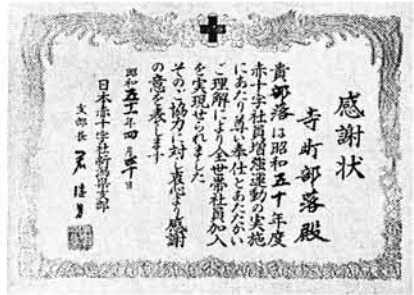 感謝状
寺町部落殿
貴部落は昭和五十年度
赤十字社員増強運動の実施
にあたり尊い奉仕とあたたかい
ご理解により全世帯社員加入
を実現せられました
そのご協力に対し衷心より感謝
の意を表します
昭和五十一年四月三十日
日本赤十字社新潟県支部
支部長 君健男